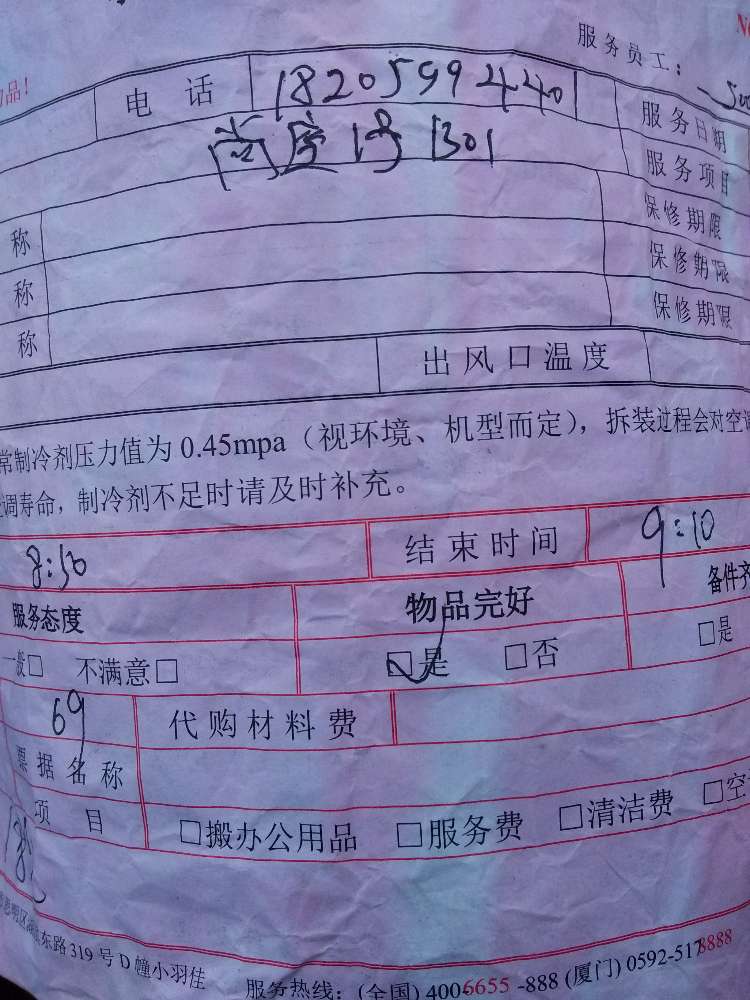 服务员工：
品！
电话 18205994401
服务日期
号1301
服务项目
保修期限
称
保修期限
称
保修期限
称
出风口温度
常制冷剂压力值为 0.45mpa（视环境、机型而定），拆装过程会对空调
调寿命，制冷剂不足时请及时补充。
8:50 结束时间 9:10
服务态度 物品完好 备件齐
一般□ 不满意□ □是 □否 □是
69 代购材料费
票据名称
项目 □搬办公用品 □服务费 □清洁费 □空
东路319号D幢小羽佳 服务热线：(全国) 400-6655-888 (厦门) 0592-5178888